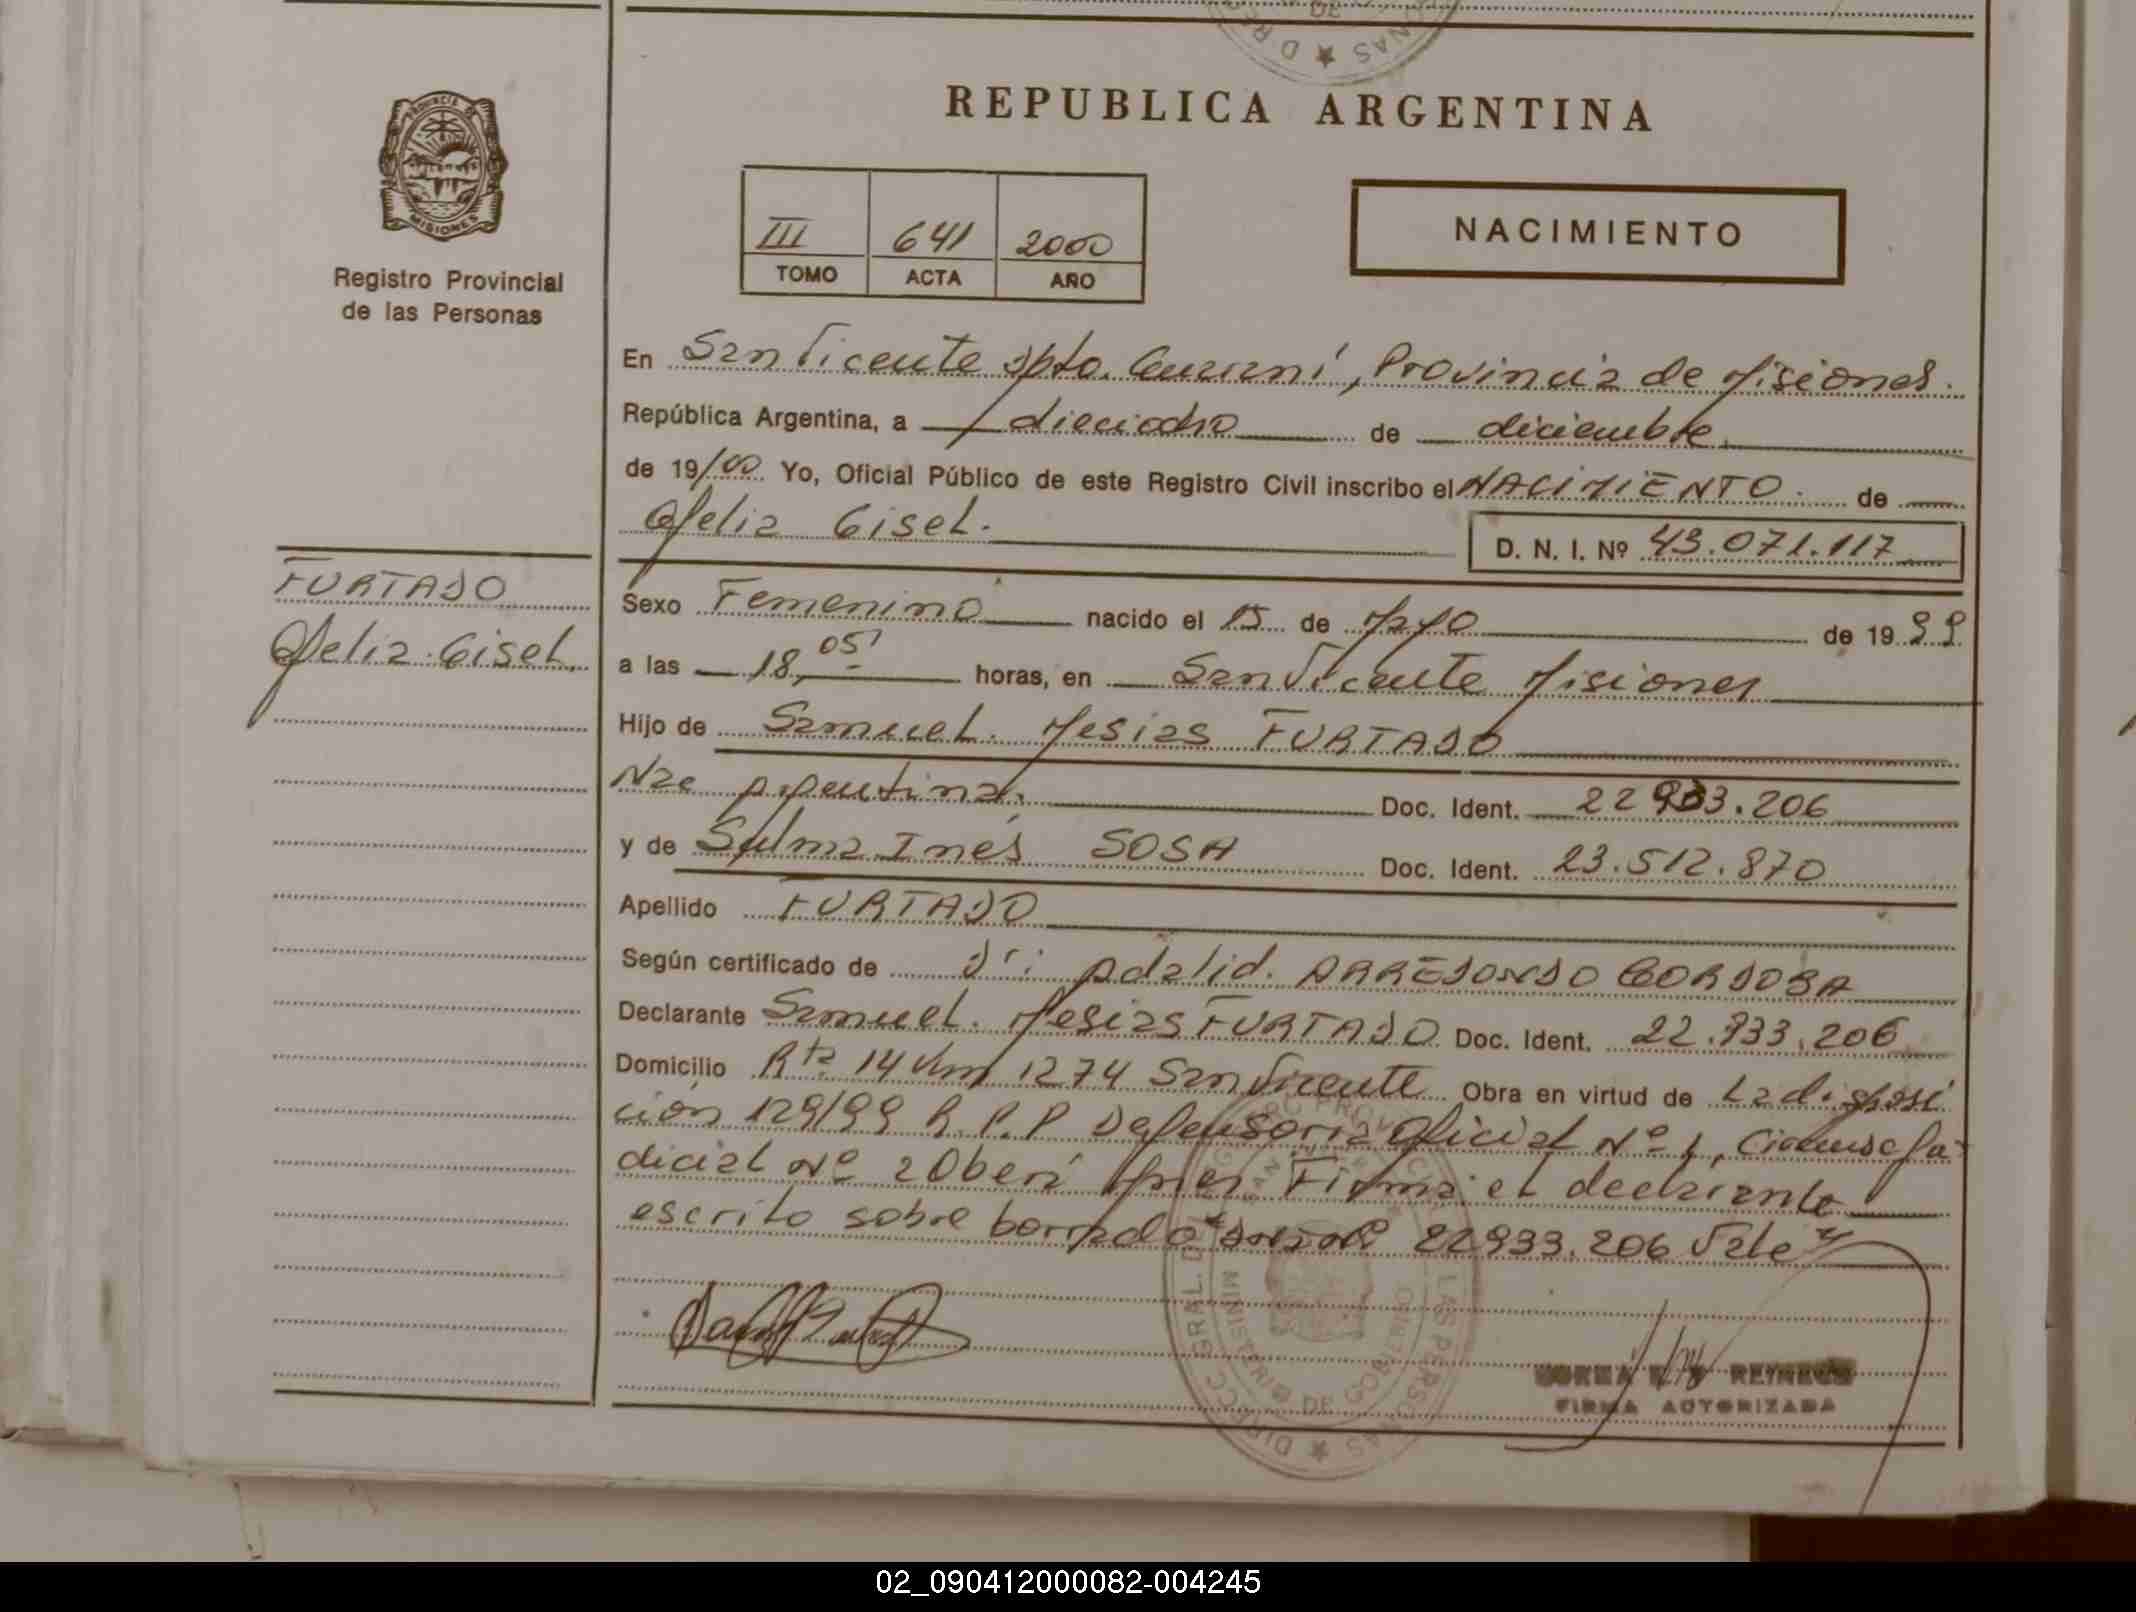 REPUBLICA ARGENTINA
PROVINCIA DE
MISIONES
Registro Provincial
de las Personas
III 641 2000
TOMO ACTA AÑO
NACIMIENTO
En San Vicente Dpto. Guaraní, Provincia de Misiones.
República Argentina, a dieciocho de diciembre
de 19/00 Yo, Oficial Público de este Registro Civil inscribo el NACIMIENTO. de
Ofelia Gisel.
D. N. I. Nº 43.071.117
FURTADO
Ofelia Gisel.
Sexo Femenino nacido el 15 de Mayo de 19 99
a las 18,05' horas, en San Vicente Misiones
Hijo de Samuel. Mesias FURTADO
Nac argentina, Doc. Ident. 22933.206
y de Sulma Inés SOSA Doc. Ident. 23.512.870
Apellido FURTADO
Según certificado de Dr: Adalid. ARREDONDO CORDOBA
Declarante Samuel. Mesias FURTADO Doc. Ident. 22.933.206
Domicilio Rta 14 Km 1274 San Vicente Obra en virtud de La disposi
ción 129/99 R.P.P Defensoria Oficial Nº 1, Circunsc Ju
dicial Nº 2 Oberá Mnes Firma el declarante
escrito sobre borrado 22933.206 Vale
FIRMA AUTORIZADA
DIRECC. GRAL. DEL REGISTRO PROVINCIAL DE LAS PERSONAS
MINISTERIO DE GOBIERNO
02_090412000082-004245